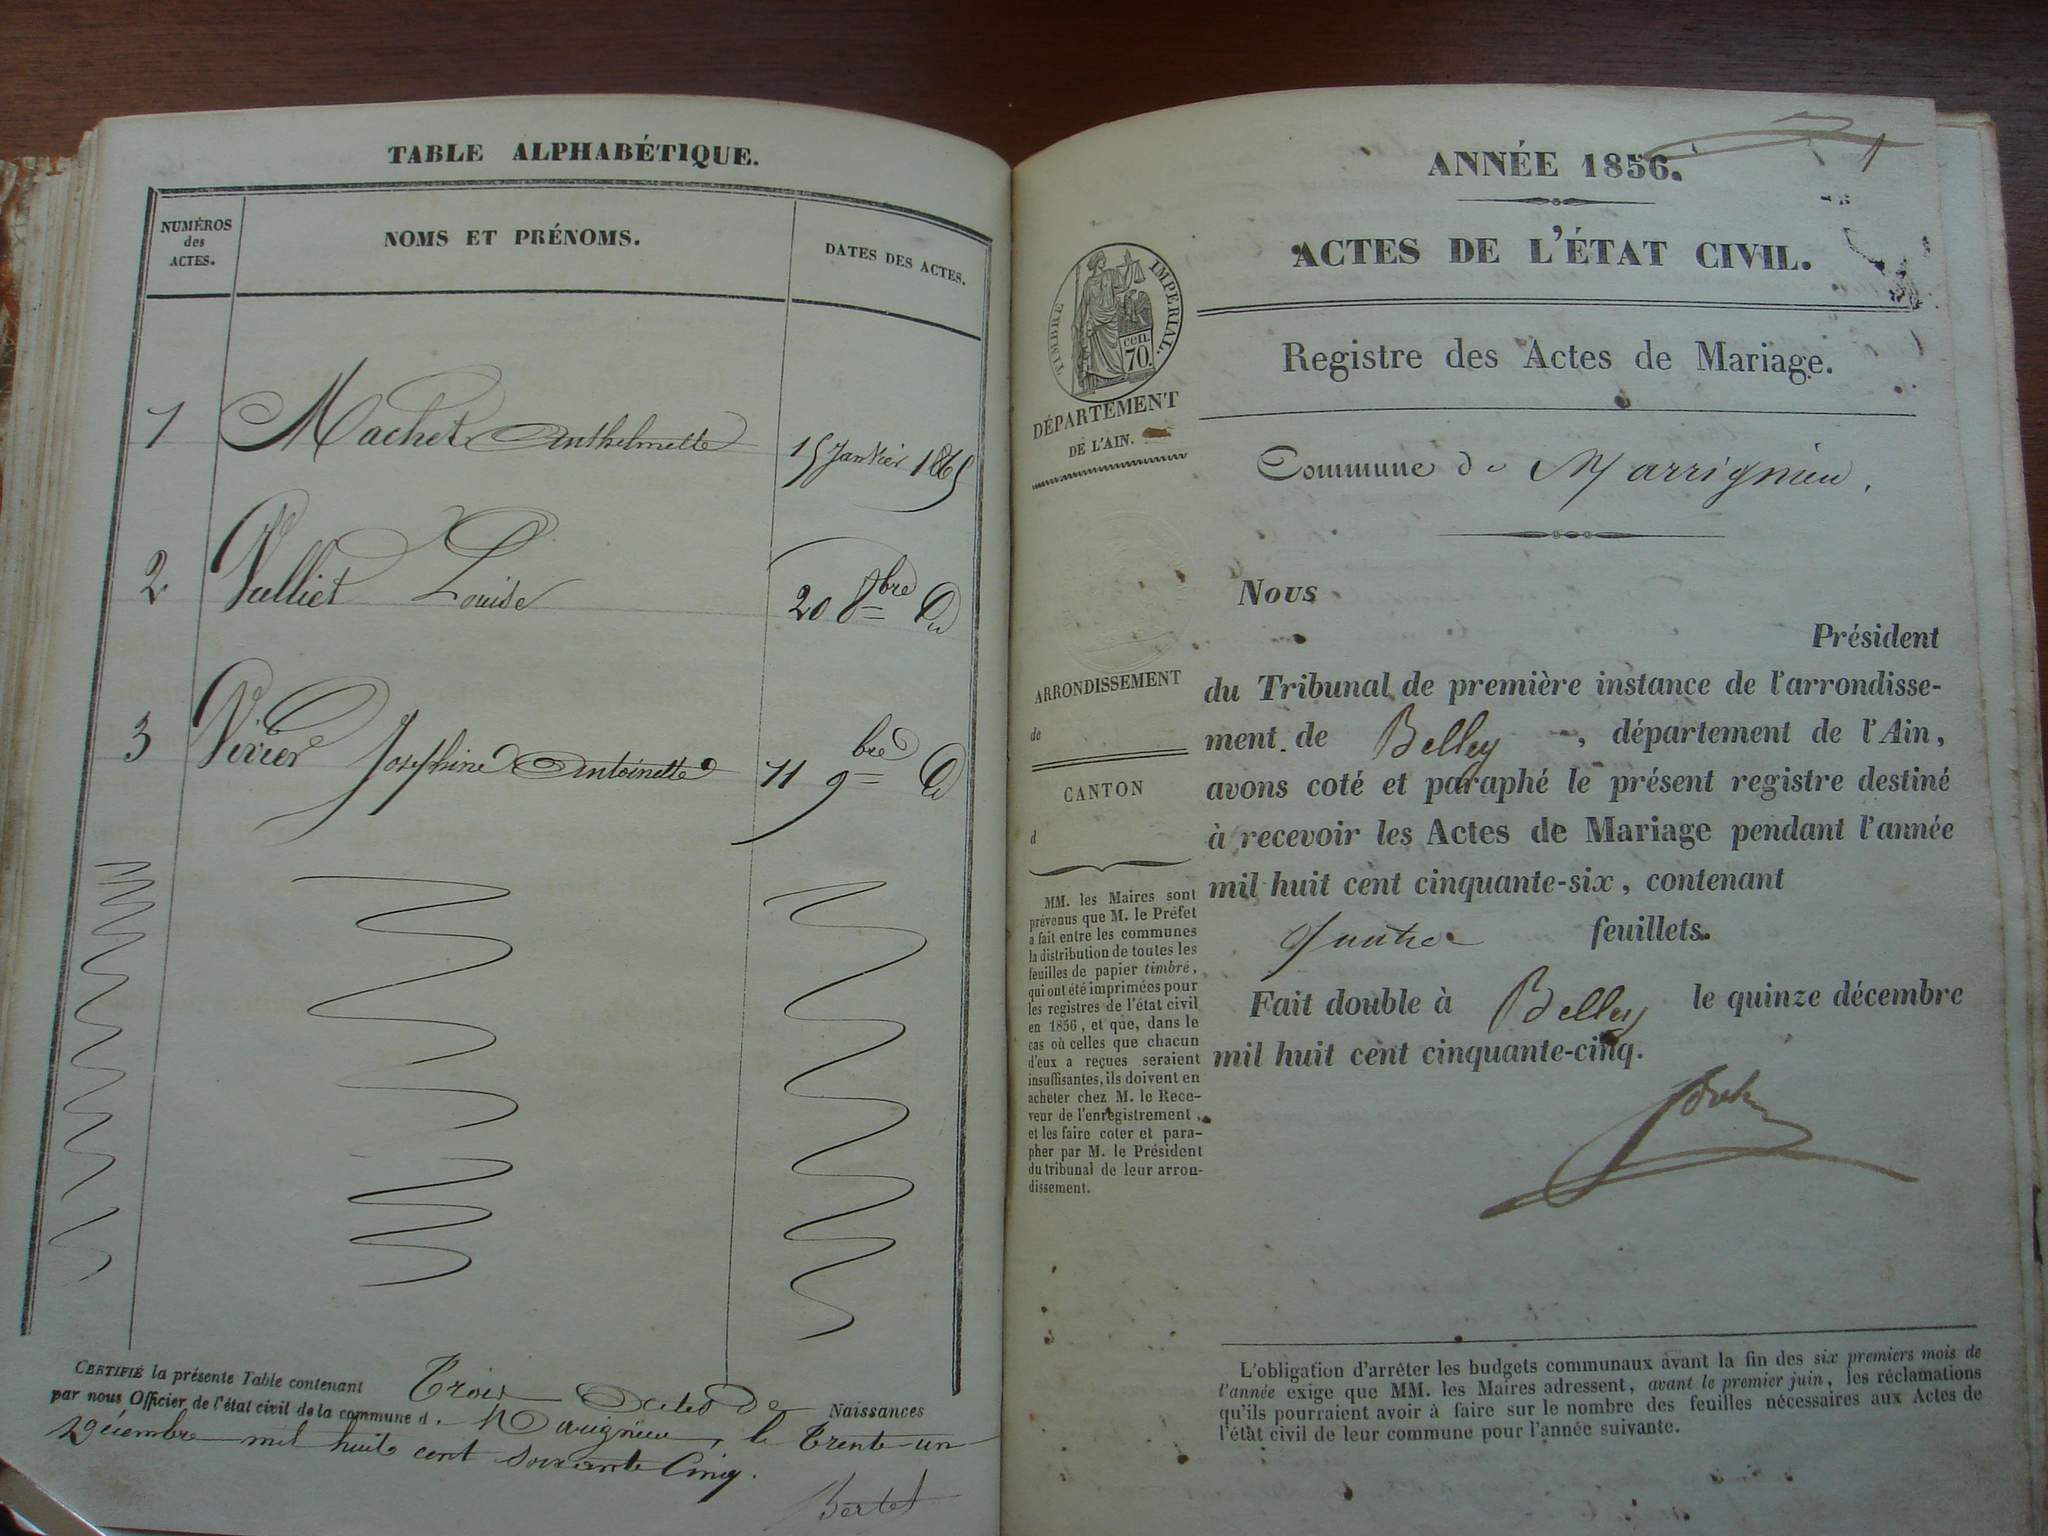 TABLE ALPHABÉTIQUE.
NUMÉROS
des
ACTES.
NOMS ET PRÉNOMS.
DATES DES ACTES.
1 Machet Anthelmette 15 Janvier 1865
2 Vulliet Louise 20 8bre Du
3 Virier Josephine Antoinette 11 9bre Du
CERTIFIÉ la présente Table contenant Trois Actes de Naissances
par nous Officier de l'état civil de la commune d. Marignieu, le Trente-un
Décembre mil huit cent soixante Cinq.
Bertet
1
ANNÉE 1856.
ACTES DE L'ÉTAT CIVIL.
TIMBRE IMPERIAL.
cen.
70.
DÉPARTEMENT
DE L'AIN.
Registre des Actes de Mariage.
Commune de Marrignieu.
ARRONDISSEMENT
de
CANTON
d
MM. les Maires sont
prévenus que M. le Préfet
a fait entre les communes
la distribution de toutes les
feuilles de papier timbré,
qui ont été imprimées pour
les registres de l'état civil
en 1856, et que, dans le
cas où celles que chacun
d'eux a reçues seraient
insuffisantes, ils doivent en
acheter chez M. le Rece-
veur de l'enregistrement,
et les faire coter et para-
pher par M. le Président
du tribunal de leur arron-
dissement.
Nous
Président
du Tribunal de première instance de l'arrondisse-
ment de Belley, département de l'Ain,
avons coté et paraphé le présent registre destiné
à recevoir les Actes de Mariage pendant l'année
mil huit cent cinquante-six, contenant
Quatre feuillets.
Fait double à Belley le quinze décembre
mil huit cent cinquante-cinq.
L'obligation d'arrêter les budgets communaux avant la fin des six premiers mois de
l'année exige que MM. les Maires adressent, avant le premier juin, les réclamations
qu'ils pourraient avoir à faire sur le nombre des feuilles nécessaires aux Actes de
l'état civil de leur commune pour l'année suivante.